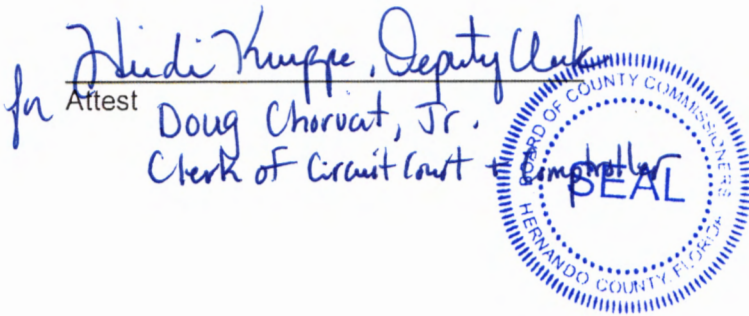 Heidi Kuppe, Deputy Clerk
for Attest
Doug Chorvat, Jr.
Clerk of Circuit Court + Comptroller
BOARD OF COUNTY COMMISSIONERS
SEAL
HERNANDO COUNTY, FLORIDA